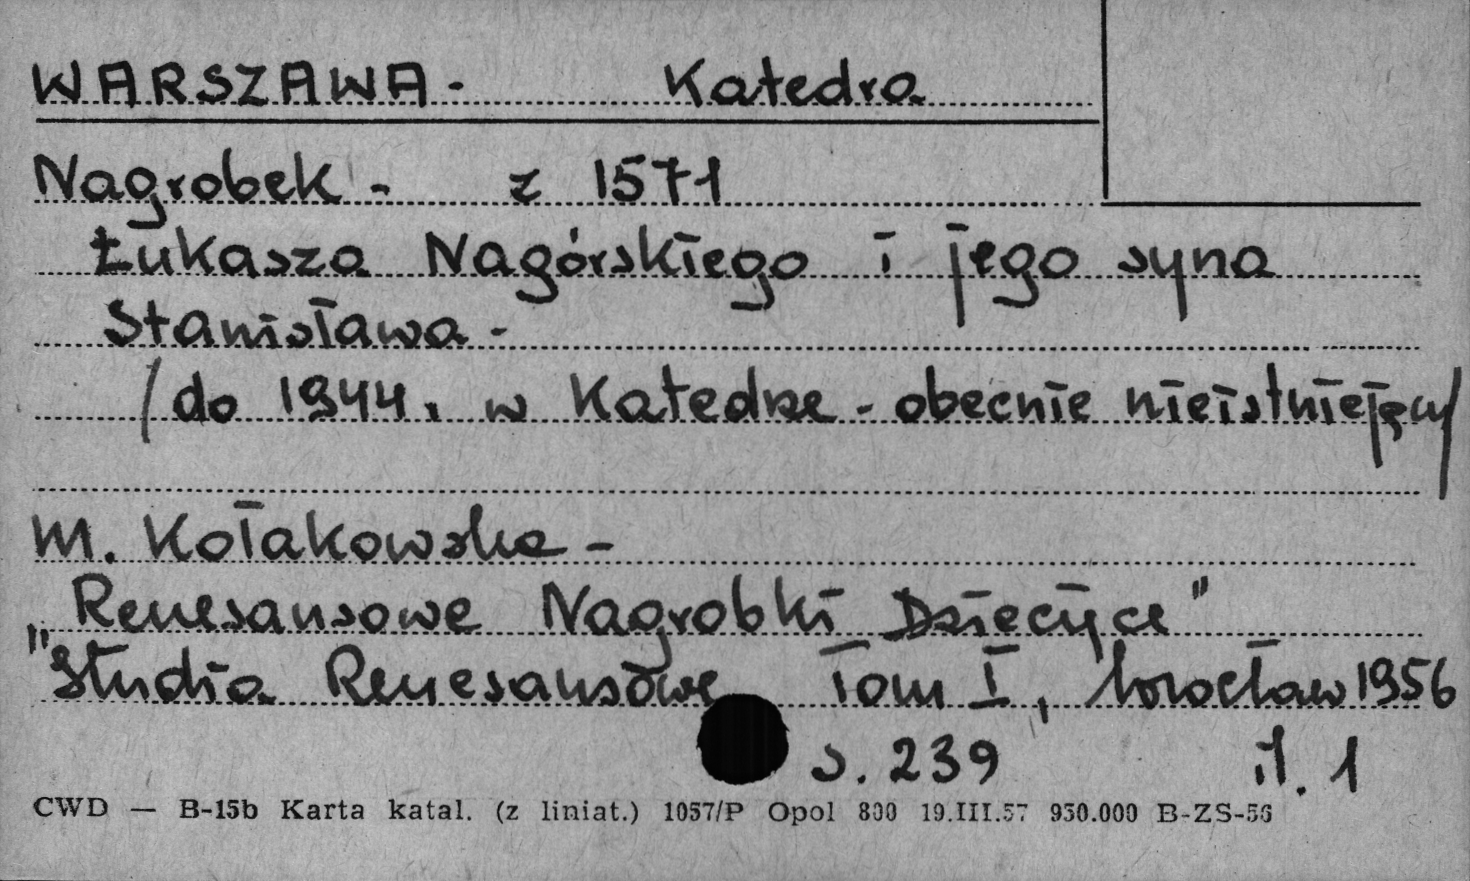 WARSZAWA - Katedra
Nagrobek - z 1571
Łukasza Nagórskiego i jego syna
Stanisława -
/do 1944. w Katedrze - obecnie nieistniejący/
M. Kołakowska -
„Renesansowe Nagrobki Dziecięce"
"Studia Renesansowe Tom I, Wrocław 1956
s. 239 il. 1
CWD — B-15b Karta katal. (z liniat.) 1057/P Opol 800 19.III.57 950.000 B-ZS-56